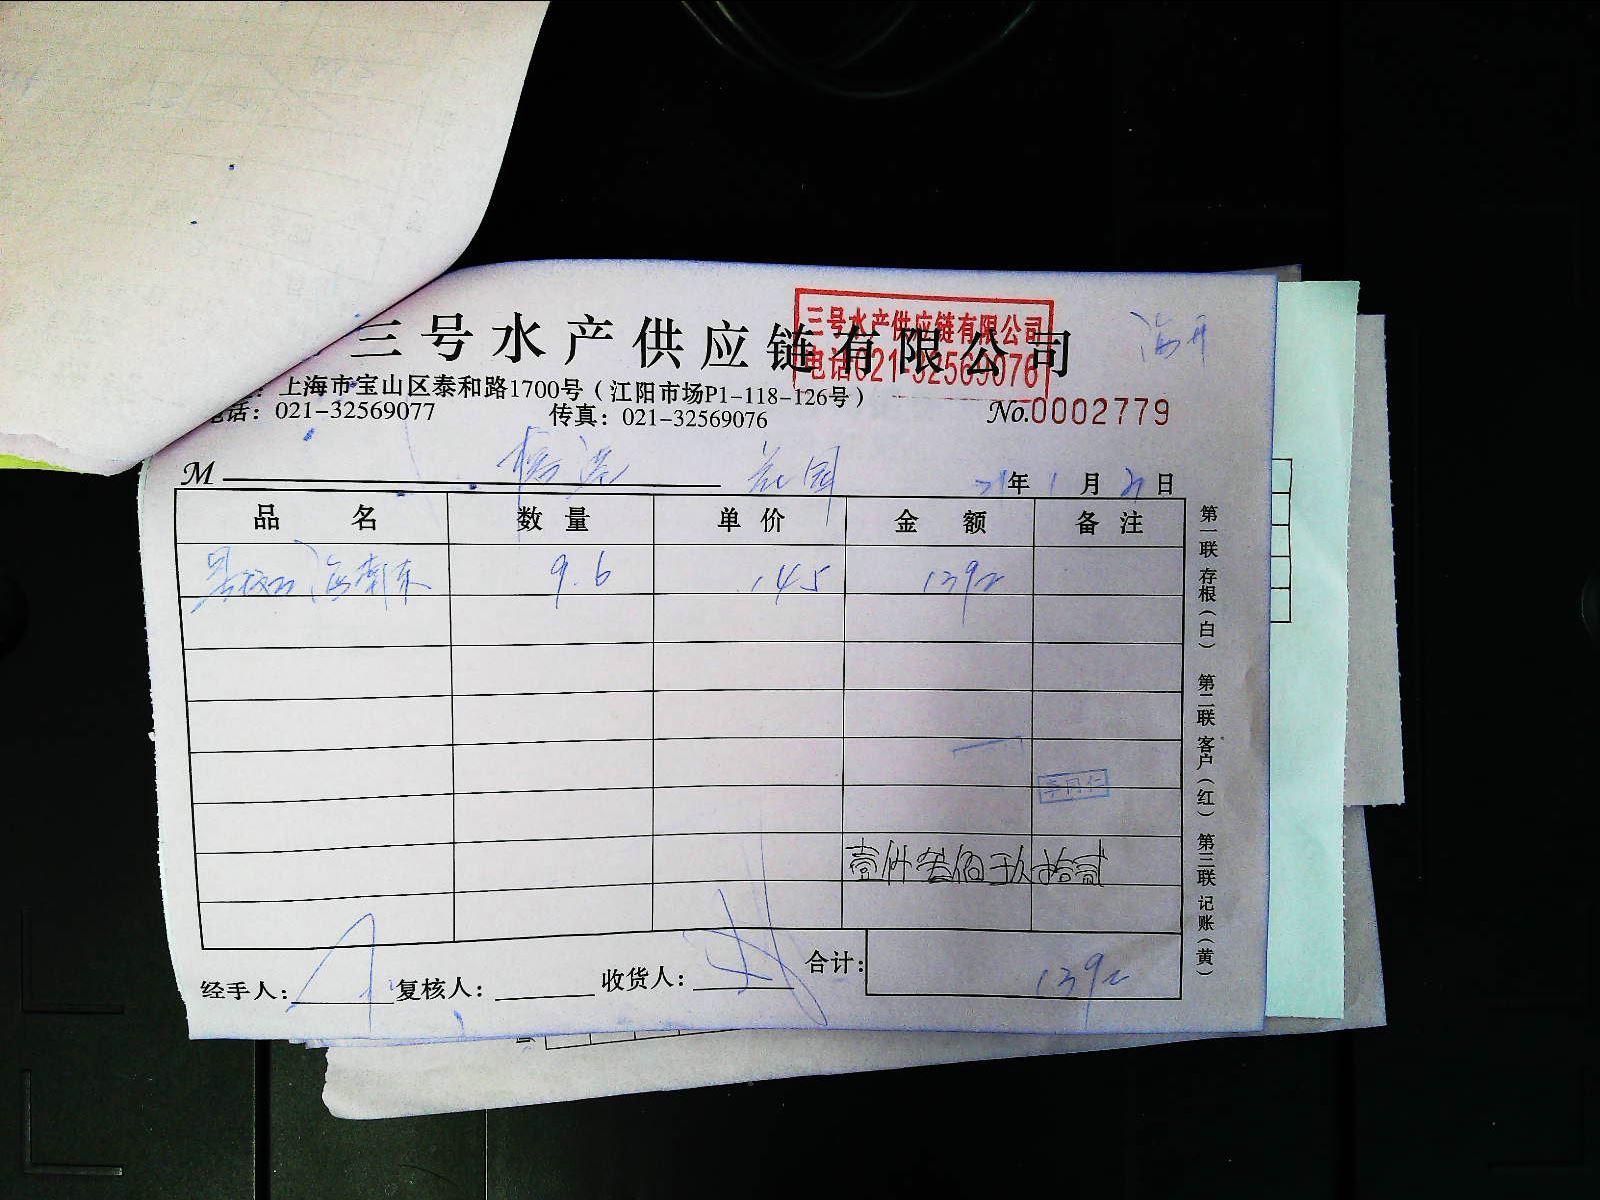 三号水产供应链有限公司
三号水产供应链有限公司
电话021-32569076
上海市宝山区泰和路1700号（江阳市场P1-118-126号）
电话：021-32569077 传真：021-32569076
No.0002779
M 花园 21年1月21日
品名 数量 单价 金额 备注
9.6 145 1392
壹仟叁佰玖拾贰
经手人： 复核人： 收货人： 合计： 1392
第一联 存根（白） 第二联 客户（红） 第三联 记账（黄）